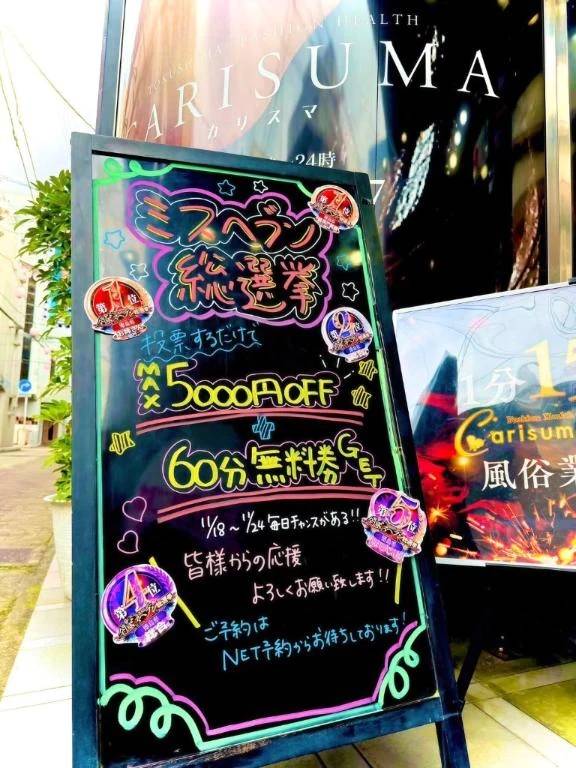 FASHION HEALTH
CARISUMA
カリスマ
24時
ミスヘブン
総選挙
第1位
第2位
投票するだけで
MAX 5000円OFF
60分無料券GET
11/18〜11/24 毎日チャンスがある!!
第5位
皆様からの応援
よろしくお願い致します!!
第4位
ご予約は
NET予約からお待ちしております!
1分
Carisuma
風俗業